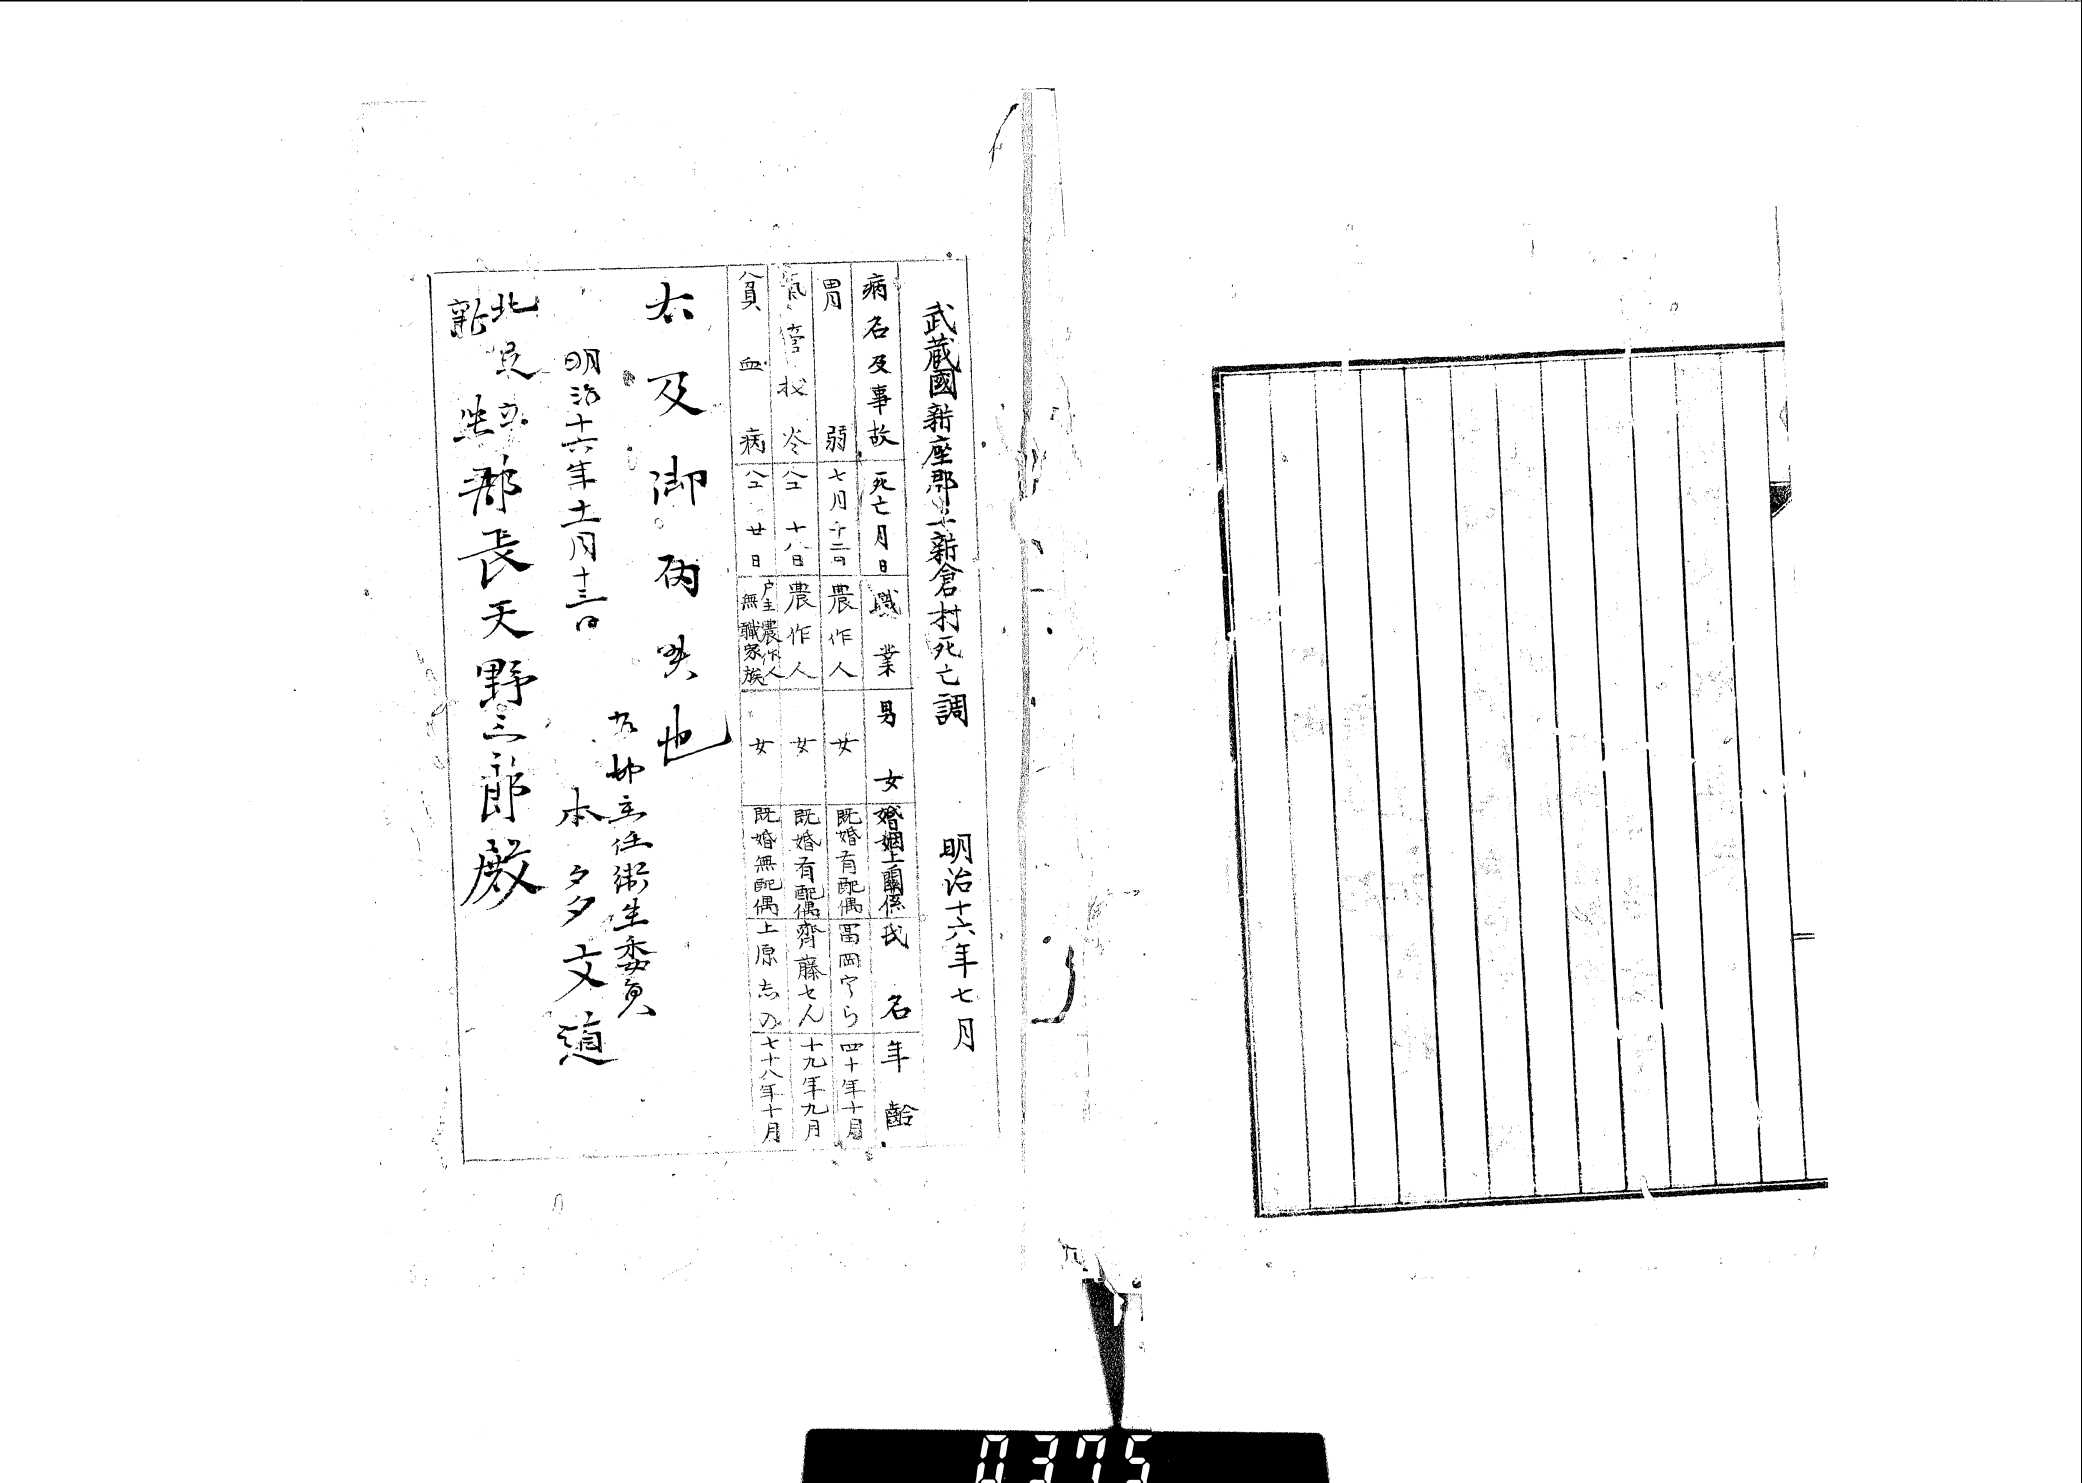 武蔵國新座郡上新倉村死亡調 明治十六年七月
病名及事故 死亡月日 職業 男女 婚姻上関係 氏名 年齢
胃弱 七月十二日 農作人 女 既婚有配偶 冨岡うら 四十年十月
氣管 仝 十八日 農作人 女 既婚有配偶 齊藤せん 十九年九月
貧血病 仝 廿日 戸主農作人無職家族 女 既婚無配偶 上原志の 七十八年十月
右及御届候也
右村主任衛生委員
明治十六年十一月十三日
本多文
北足立
新座 郡長天野三郎殿
0375